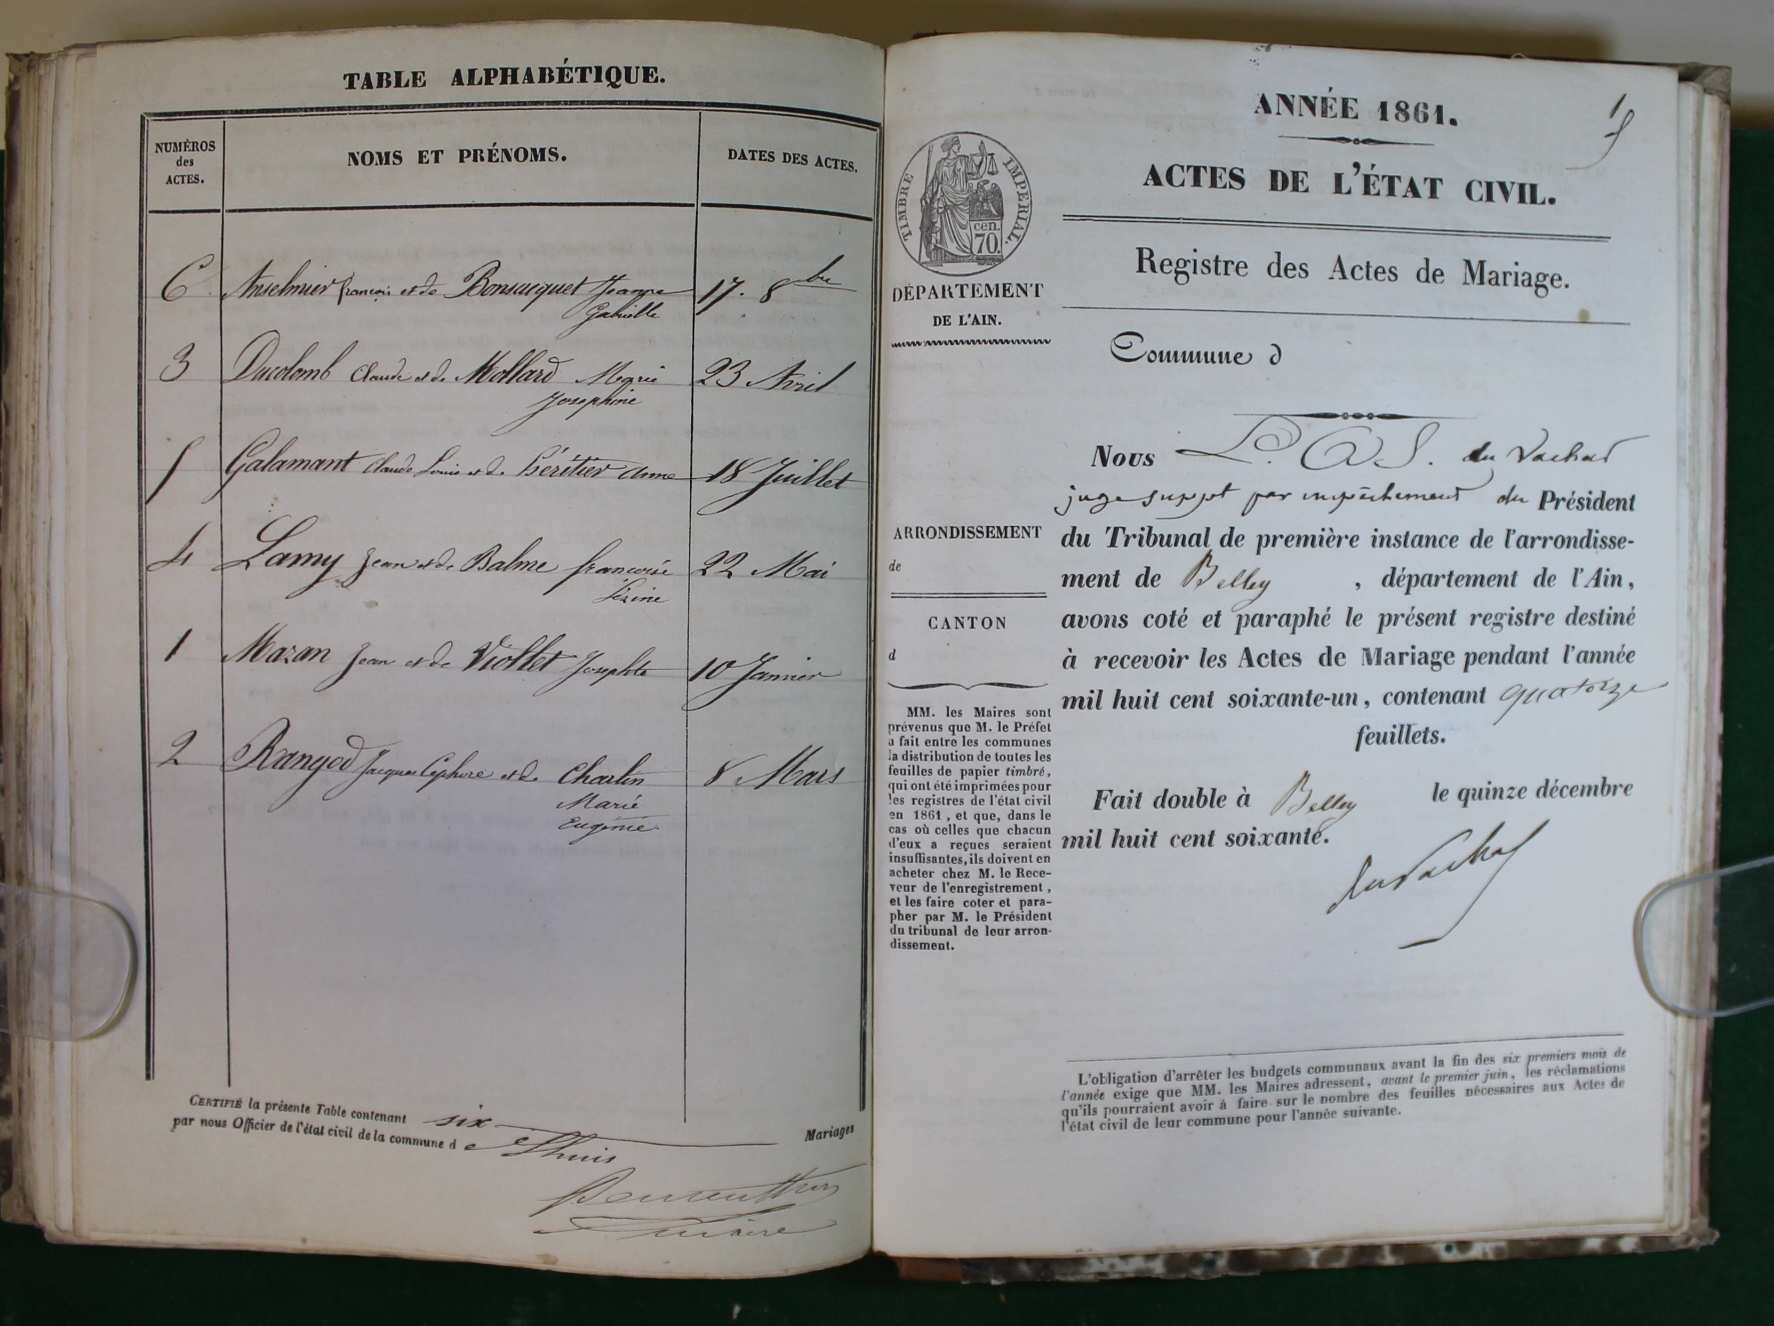 TABLE ALPHABÉTIQUE.
NUMÉROS
des
ACTES.
NOMS ET PRÉNOMS.
DATES DES ACTES.
6 Anselmier françois et de Bonsacquet Jeanne 17. 8bre
Gabrielle
3 Ducolomb Claude et de Mollard Marie 23 Avril
Josephine
5 Galamant Claude Louis et de Héritier Anne 18 Juillet
4 Lamy Jean et de Balme françoise 22 Mai
1 Mazan Jean et de Viollet Josephte 10 Janvier
2 Ranged Jacques et de Charlin 8 Mars
Marie
Eugénie
CERTIFIÉ la présente Table contenant six Mariages
par nous Officier de l'état civil de la commune de Lhuis
ANNÉE 1861.
1
ACTES DE L'ÉTAT CIVIL.
TIMBRE IMPÉRIAL.
cen.
70.
Registre des Actes de Mariage.
DÉPARTEMENT
DE L'AIN.
Commune d
Nous L. A. S. du Vachat
juge suppt par empêchement du Président
du Tribunal de première instance de l'arrondisse-
ment de Belley, département de l'Ain,
avons coté et paraphé le présent registre destiné
à recevoir les Actes de Mariage pendant l'année
mil huit cent soixante-un, contenant quatorze
feuillets.
Fait double à Belley le quinze décembre
mil huit cent soixante.
du Vachat
ARRONDISSEMENT
de
CANTON
d
MM. les Maires sont
prévenus que M. le Préfet
a fait entre les communes
la distribution de toutes les
feuilles de papier timbré,
qui ont été imprimées pour
les registres de l'état civil
en 1861, et que, dans le
cas où celles que chacun
d'eux a reçues seraient
insuffisantes, ils doivent en
acheter chez M. le Rece-
veur de l'enregistrement,
et les faire coter et para-
pher par M. le Président
du tribunal de leur arron-
dissement.
L'obligation d'arrêter les budgets communaux avant la fin des six premiers mois de
l'année exige que MM. les Maires adressent, avant le premier juin, les réclamations
qu'ils pourraient avoir à faire sur le nombre des feuilles nécessaires aux Actes de
l'état civil de leur commune pour l'année suivante.